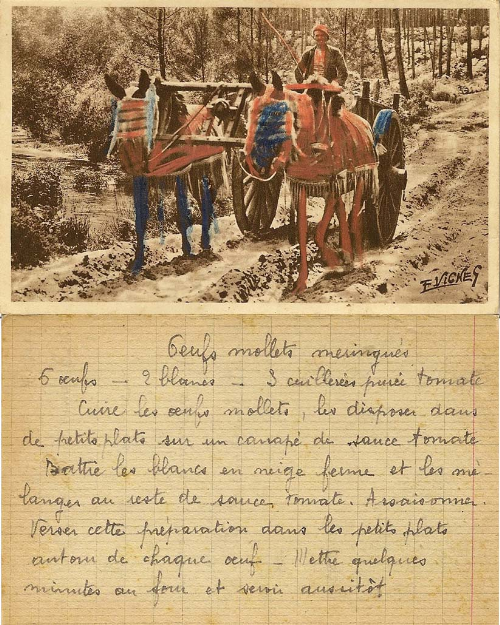 F. VIGNES
Oeufs mollets meringués
6 œufs - 2 blancs - 3 cuillerées purée tomate
Cuire les œufs mollets, les disposer dans
de petits plats sur un canapé de sauce tomate
Battre les blancs en neige ferme et les mé-
langer au reste de sauce tomate. Assaisonner.
Verser cette préparation dans les petits plats
autour de chaque œuf - Mettre quelques
minutes au four et servir aussitôt